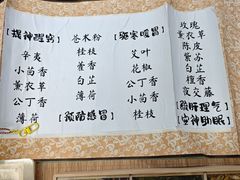 【提神醒窍】
辛夷
小茴香
薰衣草
公丁香
薄荷
苍术粉
桂枝
藿香
白芷
薄荷
【预防感冒】
【驱寒暖胃】
艾叶
花椒
公丁香
小茴香
桂枝
玫瑰
薰衣草
陈皮
紫苏
白芷
檀香
夜交藤
【疏肝理气】
【安神助眠】